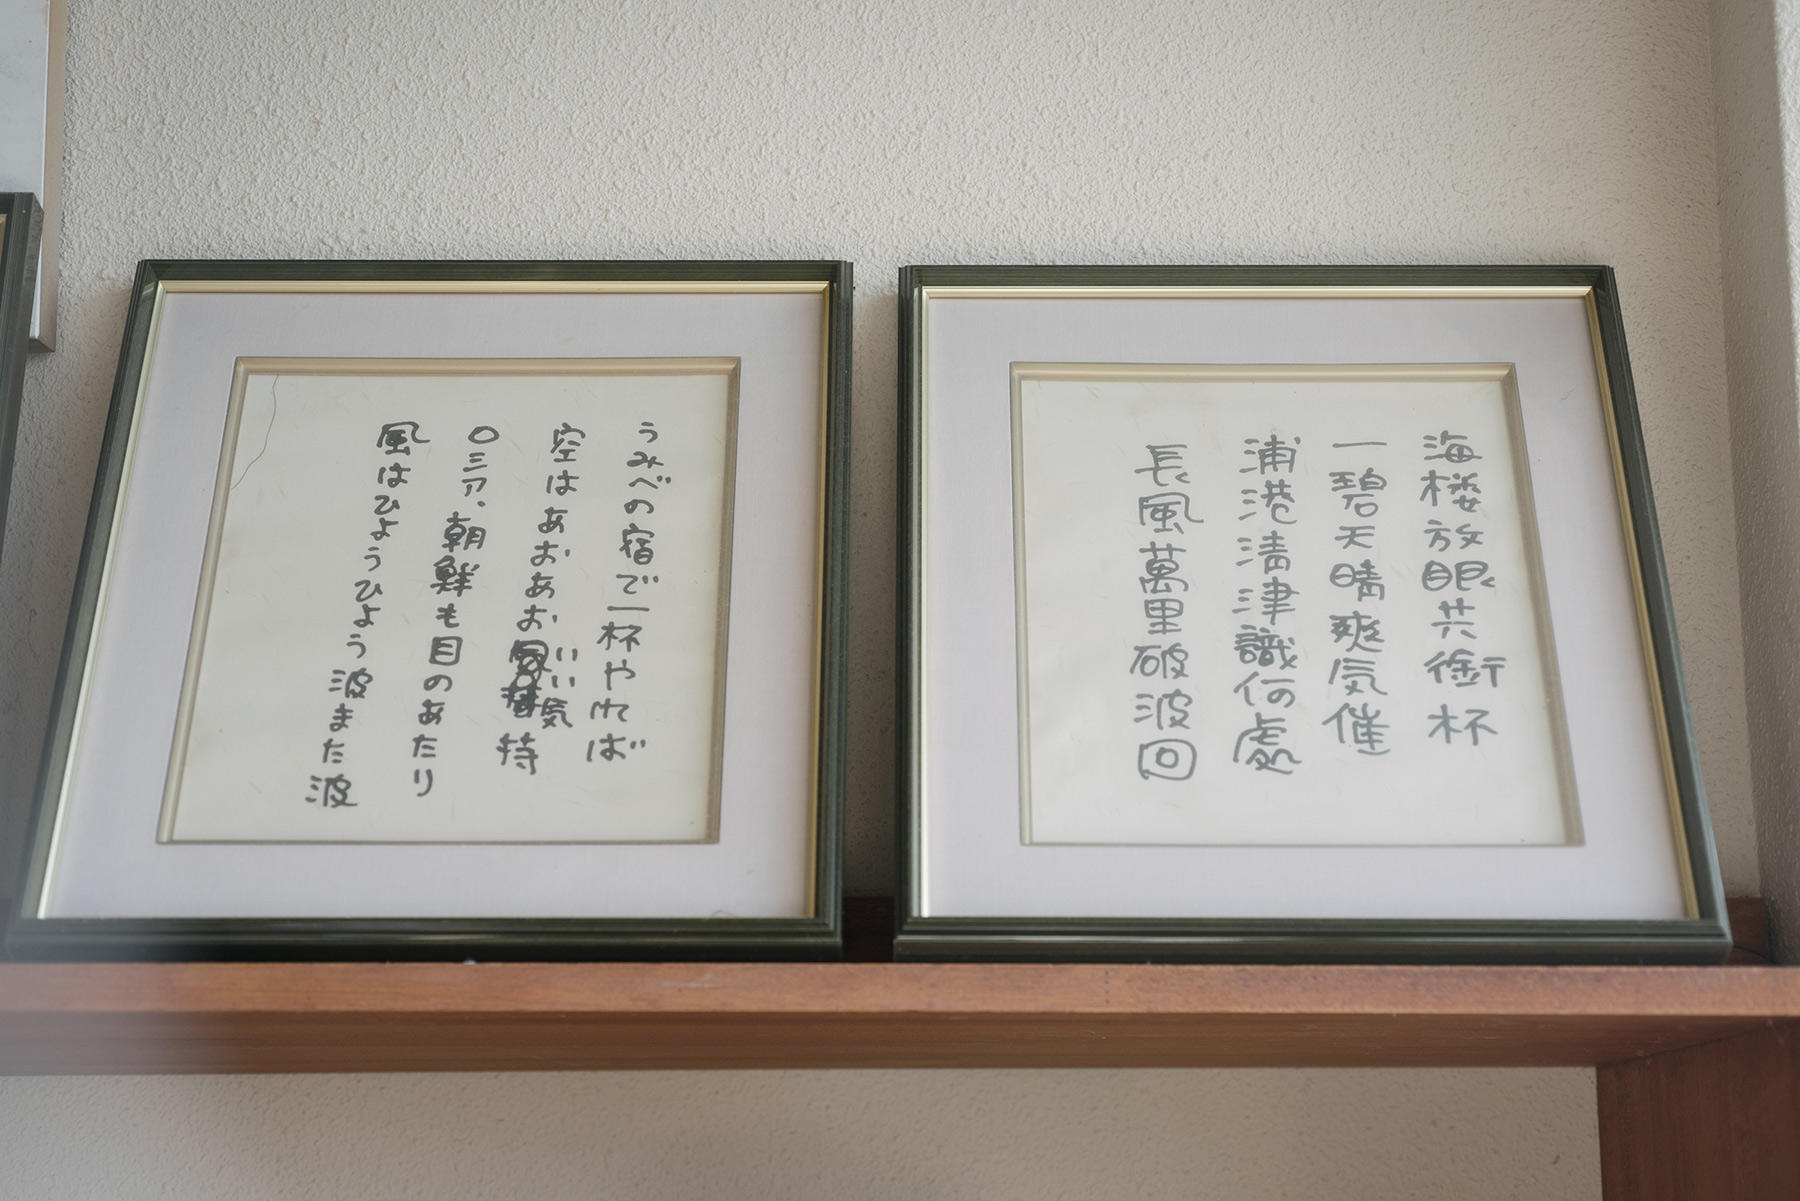 海楼放眼共銜杯
一碧天晴爽気催
浦港清津識何處
長風萬里破波回
うみべの宿で一杯やれば
空はあおあおいい気持
ロシア、朝鮮も目のあたり
風はひょうひょう波また波